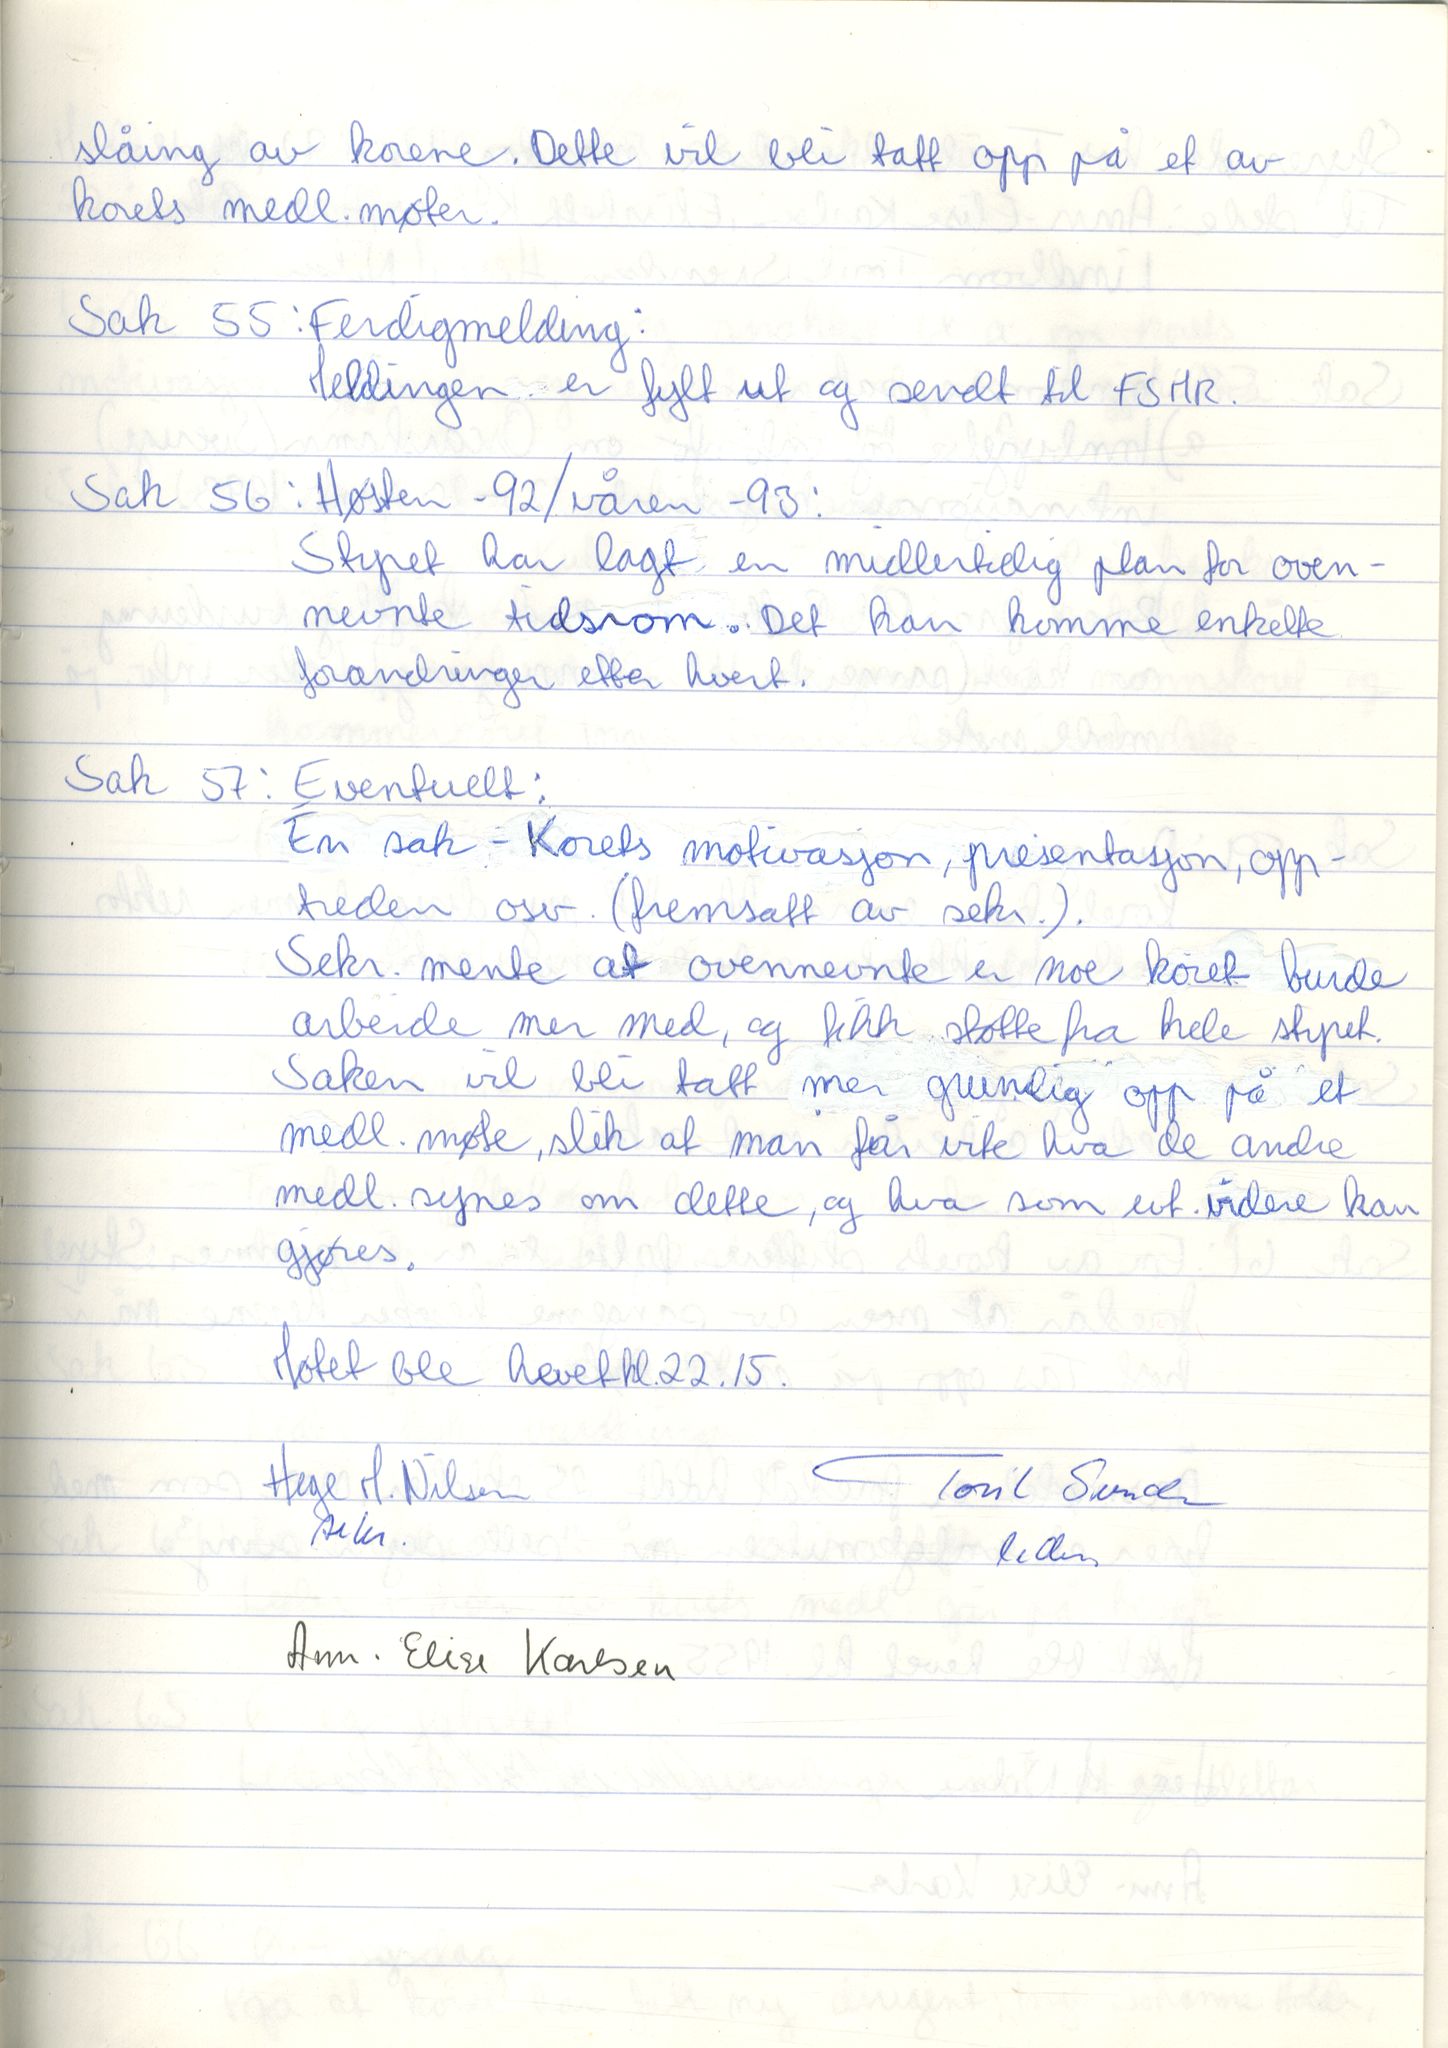 slåing av korene. Dette vil bli tatt opp på et av
korets medl.møter.
Sak 55: Ferdigmelding:
Meldingen er fylt ut og sendt til FSMR.
Sak 56: Høsten -92/våren -93:
Styret har lagt en midlertidig plan for oven-
nevnte tidsrom. Det kan komme enkelte
forandringer etter hvert.
Sak 57: Eventuelt:
Én sak - Korets motivasjon, presentasjon, opp-
treden osv. (fremsatt av sekr.).
Sekr. mente at ovennevnte er noe koret burde
arbeide mer med, og fikk støtte fra hele styret.
Saken vil bli tatt mer grundig opp på et
medl. møte, slik at man får vite hva de andre
medl. synes om dette, og hva som evt. videre kan
gjøres.
Møtet ble hevet kl. 22.15.
Hege M. Nilsen
sekr.
Toril
leder
Ann-Elise Karlsen